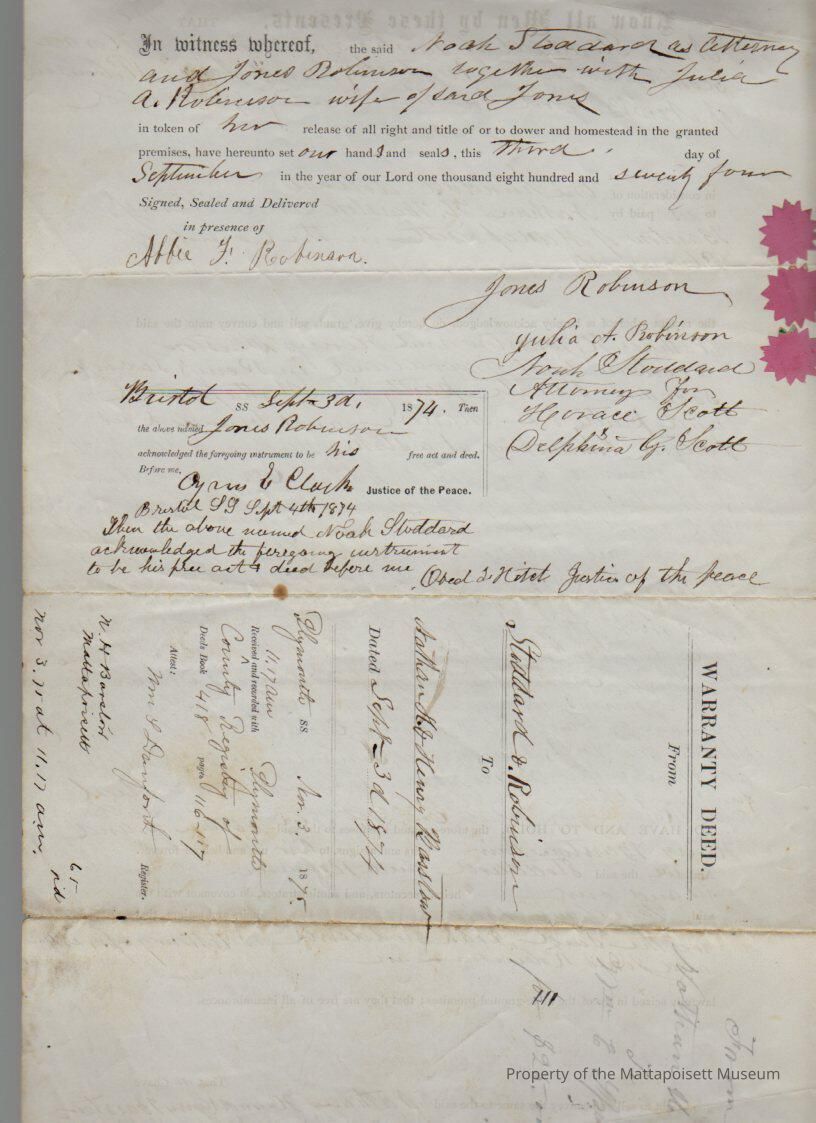 In witness whereof, the said Noah Stoddard as Attorney
and Jones Robinson together with Julia
A. Robinson wife of said Jones
in token of her release of all right and title of or to dower and homestead in the granted
premises, have hereunto set our hands and seals, this Third day of
September in the year of our Lord one thousand eight hundred and seventy four
Signed, Sealed and Delivered
in presence of
Abbie F. Robinson.
Jones Robinson
Julia A. Robinson
Noah Stoddard
Attorney for
Horace Scott
Delphina G. Scott
Bristol SS Sept 3d, 1874. Then
the above named Jones Robinson
acknowledged the foregoing instrument to be his free act and deed.
Before me,
Cyrus E Clark Justice of the Peace.
Bristol SS Sept 4th 1874
Then the above named Noah Stoddard
acknowledged the foregoing instrument
to be his free act & deed before me
Obed Justice of the peace
WARRANTY DEED.
From
Stoddard & Robinson
To
Nathan H & Henry Barstow
Dated Sept 3d 1874
Plymouth SS. Nov. 3. 1875.
11.17 am
Received and recorded with Plymouth
County Registry of
Deeds Book 418 pages 116-117
Attest:
Wm S Danforth Register.
N. H. Barstow
Mattapoisett
Nov 3. 75 at 11.17 am.
65
Property of the Mattapoisett Museum